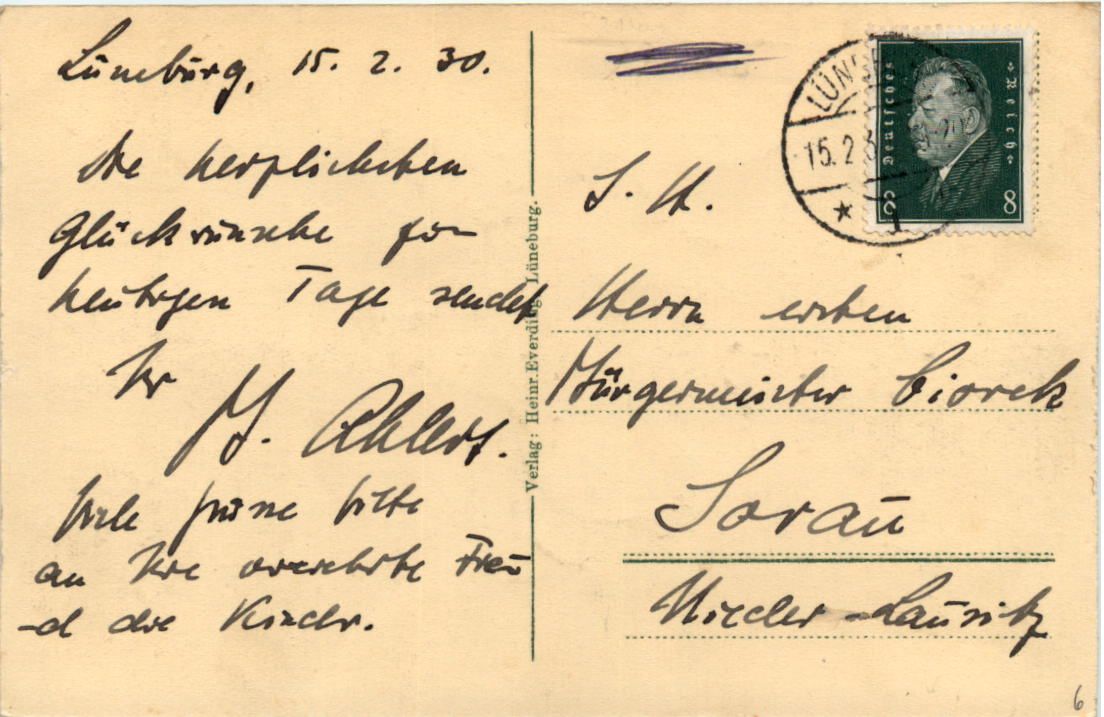 Lüneburg, 15. 2. 30.
Die herzlichsten
Glückwünsche zum
heutigen Tage sendet
Ihr
H. Ahlers.
Viele Grüße bitte
an Ihre verehrte Frau
und die Kinder.
Verlag: Heinr. Everding, Lüneburg.
LÜNEB
15. 2. 3
8-20
* 1
Deutsches Reich
8 8
S. H.
Herrn ersten
Bürgermeister
Sorau
Nieder-Lausitz
6